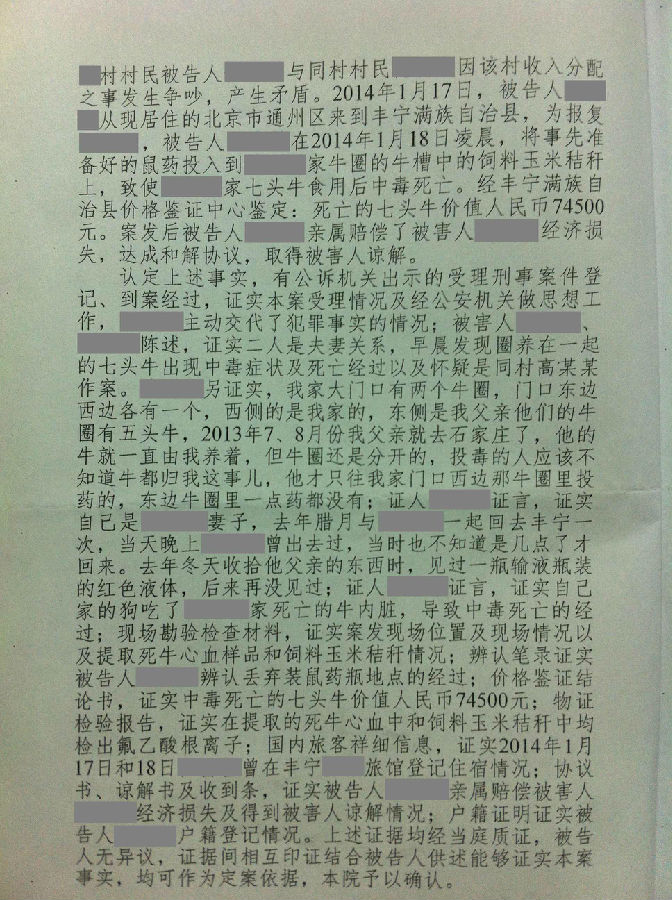 村村民被告人与同村村民因该村收入分配
之事发生争吵，产生矛盾。2014年1月17日，被告人
从现居住的北京市通州区来到丰宁满族自治县，为报复
，被告人在2014年1月18日凌晨，将事先准
备好的鼠药投入到家牛圈的牛槽中的饲料玉米秸秆
上，致使家七头牛食用后中毒死亡。经丰宁满族自
治县价格鉴证中心鉴定：死亡的七头牛价值人民币74500
元。案发后被告人亲属赔偿了被害人经济损
失，达成和解协议，取得被害人谅解。
认定上述事实，有公诉机关出示的受理刑事案件登
记、到案经过，证实本案受理情况及经公安机关做思想工
作，主动交代了犯罪事实的情况；被害人、
陈述，证实二人是夫妻关系，早晨发现圈养在一起
的七头牛出现中毒症状及死亡经过以及怀疑是同村高某某
作案。另证实，我家大门口有两个牛圈，门口东边
西边各有一个，西侧的是我家的，东侧是我父亲他们的牛
圈有五头牛，2013年7、8月份我父亲就去石家庄了，他的
牛就一直由我养着，但牛圈还是分开的，投毒的人应该不
知道牛都归我这事儿，他才只往我家门口西边那牛圈里投
药的，东边牛圈里一点药都没有；证人证言，证实
自己是妻子，去年腊月与一起回去丰宁一
次，当天晚上曾出去过，当时也不知道是几点了才
回来。去年冬天收拾他父亲的东西时，见过一瓶输液瓶装
的红色液体，后来再没见过；证人证言，证实自己
家的狗吃了家死亡的牛内脏，导致中毒死亡的经
过；现场勘验检查材料，证实案发现场位置及现场情况以
及提取死牛心血样品和饲料玉米秸秆情况；辨认笔录证实
被告人辨认丢弃装鼠药瓶地点的经过；价格鉴证结
论书，证实中毒死亡的七头牛价值人民币74500元；物证
检验报告，证实在提取的死牛心血中和饲料玉米秸秆中均
检出氟乙酸根离子；国内旅客祥细信息，证实2014年1月
17日和18日曾在丰宁旅馆登记住宿情况；协议
书、谅解书及收到条，证实被告人亲属赔偿被害人
经济损失及得到被害人谅解情况；户籍证明证实被
告人户籍登记情况。上述证据均经当庭质证，被告
人无异议，证据间相互印证结合被告人供述能够证实本案
事实，均可作为定案依据，本院予以确认。